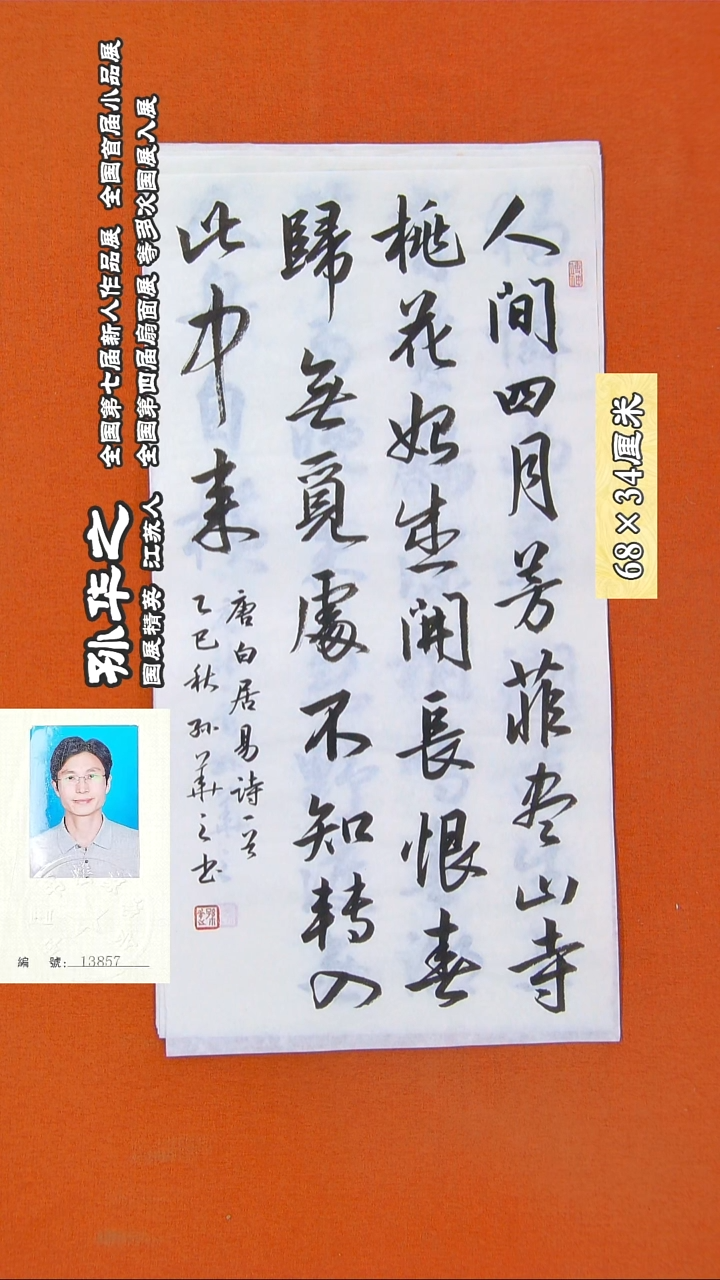 人間四月芳菲尽山寺
桃花始盛開長恨春
歸無覓處不知轉入
此中来
唐白居易詩一首
乙巳秋孙華之书
68×34厘米
孙华之
国展精英 江苏人
全国第七届新人作品展 全国首届小品展
全国第四届扇面展 等多次国展入展
編 號: 13857